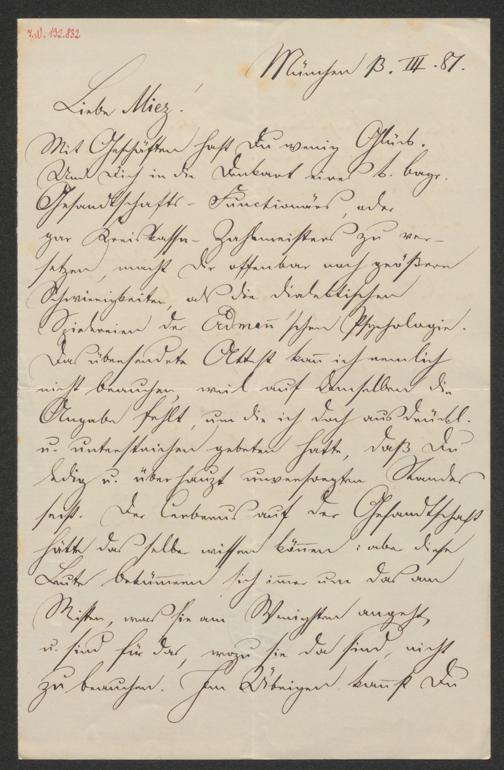 I.N. 192.832
München 13. III. 87.
Liebe Miez!
Mit Geschäften hast Du wenig Glück.
Um Dich in die Denkart eines k. bayr.
Gesandtschafts-Functionärs, oder
gar Kreiskassen-Zahlmeisters zu ver-
setzen, macht Dir offenbar noch größere
Schwierigkeiten, als die dialektischen
der schen Psychologie.
Das übersendete Attest kann ich nemlich
nicht brauchen, weil auf demselben die
Angabe fehlt, um die ich doch ausdrückl.
u. unterstrichen gebeten hatte, daß Du
ledig u. überhaupt unversorgten Standes
seist. Der Cerberus auf der Gesandtschaft
hätte das selber wissen können: aber diese
Leute bekümmern sich immer um das am
Meisten, was sie am Wenigsten angeht,
u. sind für das, wozu sie da sind, nicht
zu brauchen. Im Übrigen kannst Du